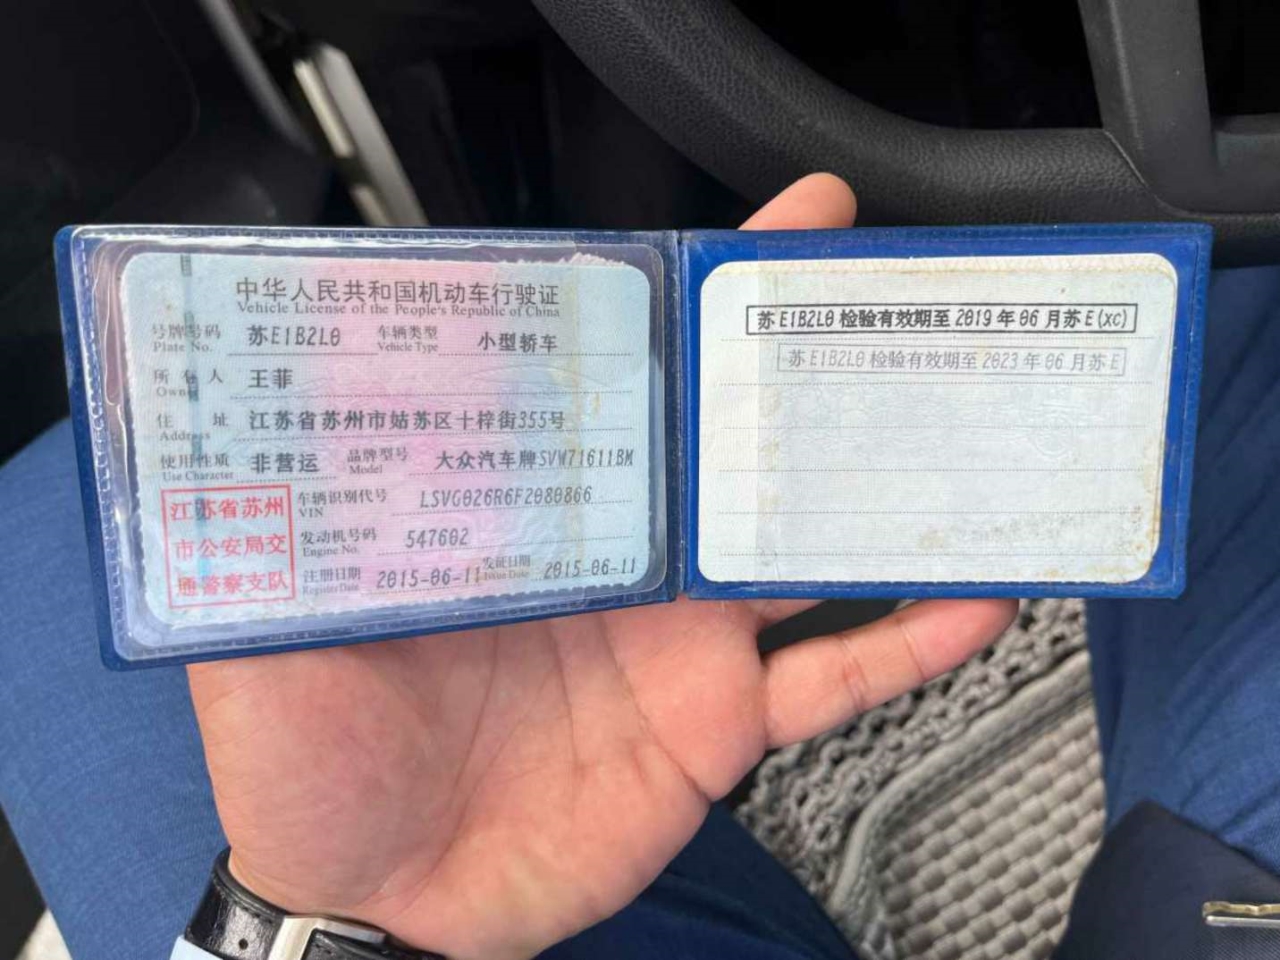 中华人民共和国机动车行驶证
Vehicle License of the People's Republic of China
号牌号码 苏E1B2L0 车辆类型 小型轿车
Plate No. Vehicle Type
所有人 王菲
Owner
住址 江苏省苏州市姑苏区十梓街355号
Address
使用性质 非营运 品牌型号 大众汽车牌SVW71611BM
Use Character Model
江苏省苏州
市公安局交
通警察支队
车辆识别代号 LSVG026R6F2080866
VIN
发动机号码 547602
Engine No.
注册日期 2015-06-11 发证日期 2015-06-11
Register Date Issue Date
苏E1B2L0检验有效期至2019年06月苏E(xc)
苏E1B2L0检验有效期至2023年06月苏E